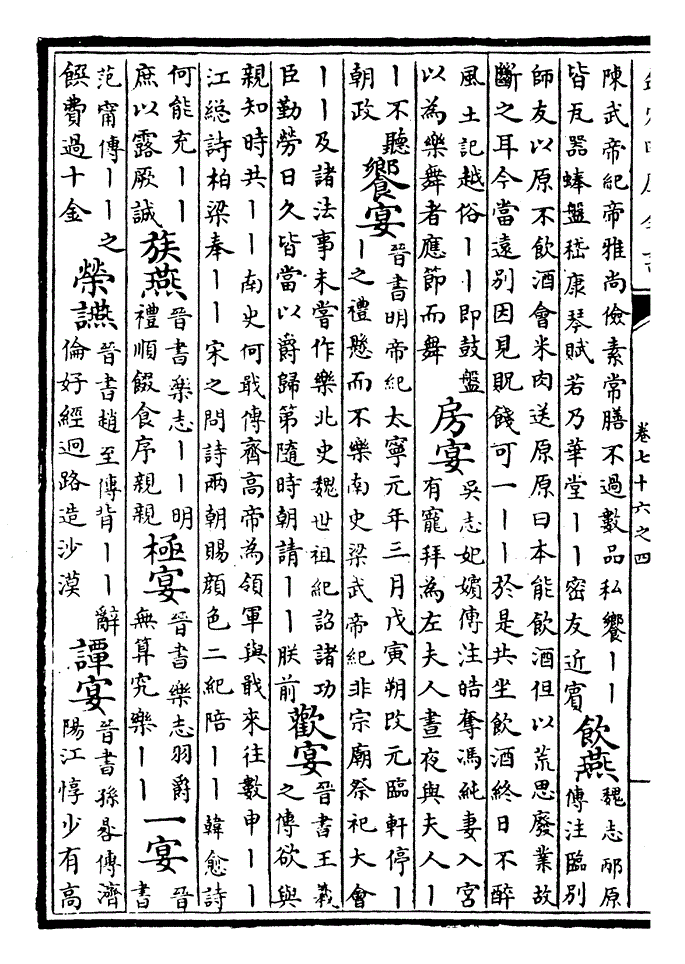 卷七十六之四
陳武帝紀帝雅尚儉素常膳不過數品私饗丨丨
皆瓦器蚌盤嵇康琴賦若乃華堂丨丨密友近賓
飲燕
魏志邴原
傳注臨別
師友以原不飲酒會米肉送原原曰本能飲酒但以荒思廢業故
斷之耳今當遠別因見貺餞可一丨丨於是共坐飲酒終日不醉
風土記越俗丨丨即鼓盤
以為樂舞者應節而舞
房宴
吳志妃嬪傳注皓奪馮純妻入宮
有寵拜為左夫人晝夜與夫人丨
丨不聽
朝政
饗宴
晉書明帝紀太寧元年三月戊寅朔改元臨軒停丨
丨之禮懸而不樂南史梁武帝紀非宗廟祭祀大會
丨丨及諸法事未嘗作樂北史魏世祖紀詔諸功
臣勤勞日久皆當以爵歸第隨時朝請丨丨朕前
歡宴
晉書王羲
之傳欲與
親知時共丨丨南史何戢傳齊高帝為領軍與戢來往數申丨丨
江總詩柏梁奉丨丨宋之問詩兩朝賜顏色二紀陪丨丨韓愈詩
何能充丨丨
庶以露厥誠
族燕
晉書樂志丨丨明
禮順餟食序親親
極宴
晉書樂志羽爵
無算究樂丨丨
一宴
晉
書
范甯傳丨丨之
饌費過十金
榮讌
晉書趙至傳背丨丨辭
倫好經迥路造沙漠
譚宴
晉書孫晷傳濟
陽江惇少有高